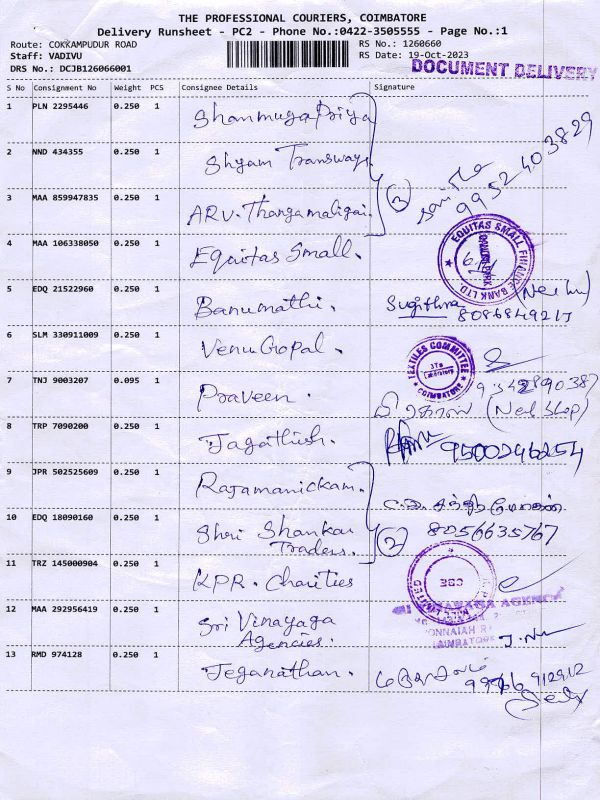 THE PROFESSIONAL COURIERS, COIMBATORE
Delivery Runsheet - PC2 - Phone No.:0422-3505555 - Page No.:1
Route: COKKAMPUDUR ROAD
RS No.: 1260660
Staff: VADIVU
RS Date: 19-Oct-2023
DRS No.: DCJB126066001
DOCUMENT DELIVERY
S No Consignment No Weight PCS Consignee Details Signature
1 PLN 2295446 0.250 1 Shanmuga Priya
2 NND 434355 0.250 1 Shyam Transways
9952403829
3 MAA 859947835 0.250 1 ARV. Thangamaligai. (3)
4 MAA 106338050 0.250 1 Equitas Small.
EQUITAS SMALL FINANCE BANK LTD.
5 EDQ 21522960 0.250 1 Banumathi. Sugithra
8086849217
6 SLM 330911009 0.250 1 Venu Gopal.
TEXTILES COMMITTEE
COIMBATORE
7 TNJ 9003207 0.095 1 Praveen. 9342890387
8 TRP 7090200 0.250 1 Jagathish. 9500246254
9 JPR 502525609 0.250 1 Rajamanickam.
10 EDQ 18090160 0.250 1 Shri Shankar Traders. (2) 8056635767
11 TRZ 145000904 0.250 1 KPR. Charities
CBE
12 MAA 292956419 0.250 1 Sri Vinayaga Agencies.
13 RMD 974128 0.250 1 Jeganathan.